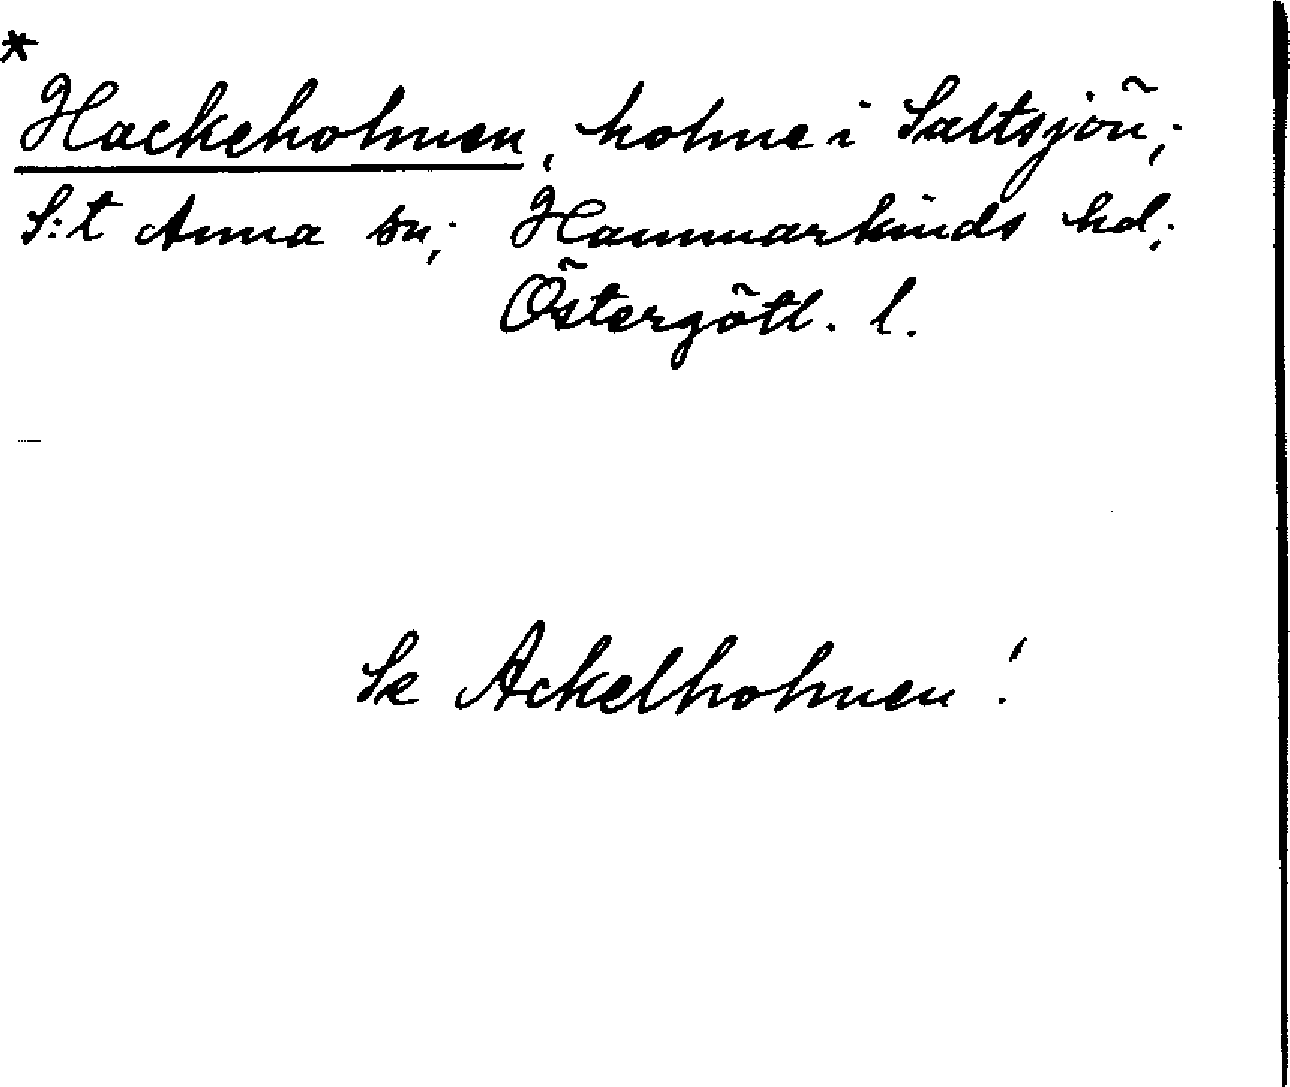 *
Hackeholmen, holme i Saltsjön;
S:t Anna sn; Hammarkinds hd;
Östergötl. l.
Se Ackelholmen!